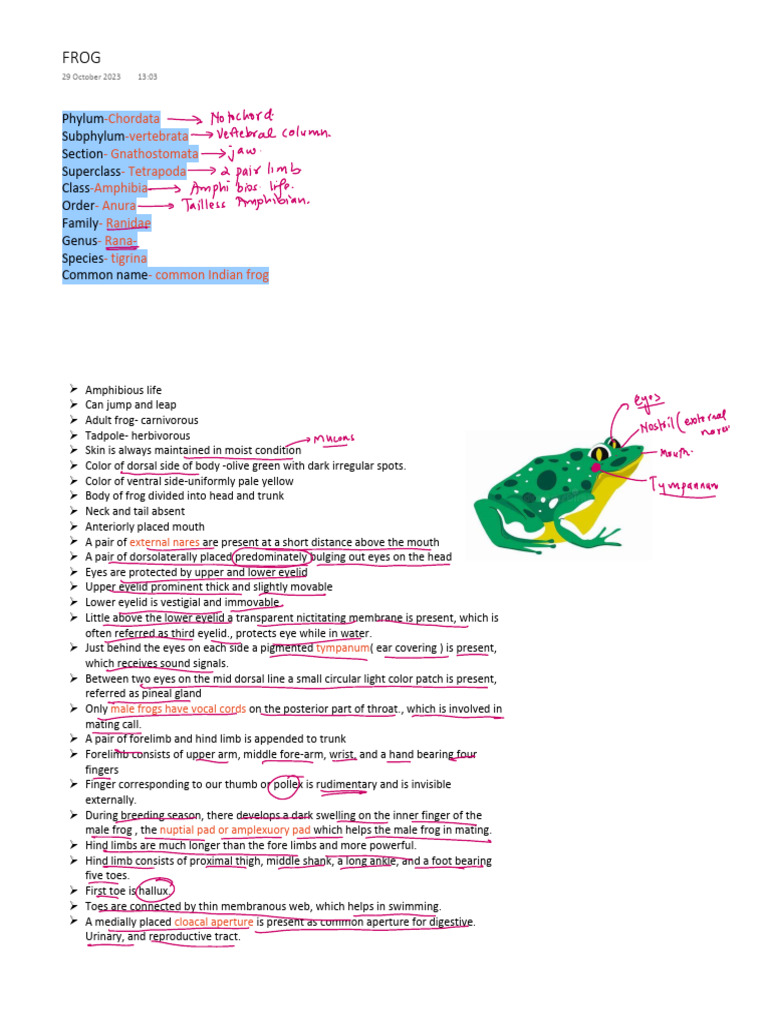 FROG
29 October 2023 13:03
Phylum-Chordata → Notochord
Subphylum-vertebrata → Vertebral column.
Section- Gnathostomata → jaw.
Superclass- Tetrapoda → 2 pair limb
Class-Amphibia → Amphi bios. life.
Order- Anura → Tailless Amphibian.
Family- Ranidae
Genus- Rana-
Species- tigrina
Common name- common Indian frog
➢ Amphibious life
➢ Can jump and leap
➢ Adult frog- carnivorous
➢ Tadpole- herbivorous
➢ Skin is always maintained in moist condition → Mucous
➢ Color of dorsal side of body -olive green with dark irregular spots.
➢ Color of ventral side-uniformly pale yellow
➢ Body of frog divided into head and trunk
➢ Neck and tail absent
➢ Anteriorly placed mouth
➢ A pair of external nares are present at a short distance above the mouth
➢ A pair of dorsolaterally placed predominately bulging out eyes on the head
➢ Eyes are protected by upper and lower eyelid
➢ Upper eyelid prominent thick and slightly movable
➢ Lower eyelid is vestigial and immovable
➢ Little above the lower eyelid a transparent nictitating membrane is present, which is
often referred as third eyelid., protects eye while in water.
➢ Just behind the eyes on each side a pigmented tympanum( ear covering ) is present,
which receives sound signals.
➢ Between two eyes on the mid dorsal line a small circular light color patch is present,
referred as pineal gland
➢ Only male frogs have vocal cords on the posterior part of throat., which is involved in
mating call.
➢ A pair of forelimb and hind limb is appended to trunk
➢ Forelimb consists of upper arm, middle fore-arm, wrist, and a hand bearing four
fingers
➢ Finger corresponding to our thumb or pollex is rudimentary and is invisible
externally.
➢ During breeding season, there develops a dark swelling on the inner finger of the
male frog , the nuptial pad or amplexuory pad which helps the male frog in mating.
➢ Hind limbs are much longer than the fore limbs and more powerful.
➢ Hind limb consists of proximal thigh, middle shank, a long ankle, and a foot bearing
five toes.
➢ First toe is hallux.
➢ Toes are connected by thin membranous web, which helps in swimming.
➢ A medially placed cloacal aperture is present as common aperture for digestive.
Urinary, and reproductive tract.
eyes
Nostril (external
nares
Mouth.
Tympannam